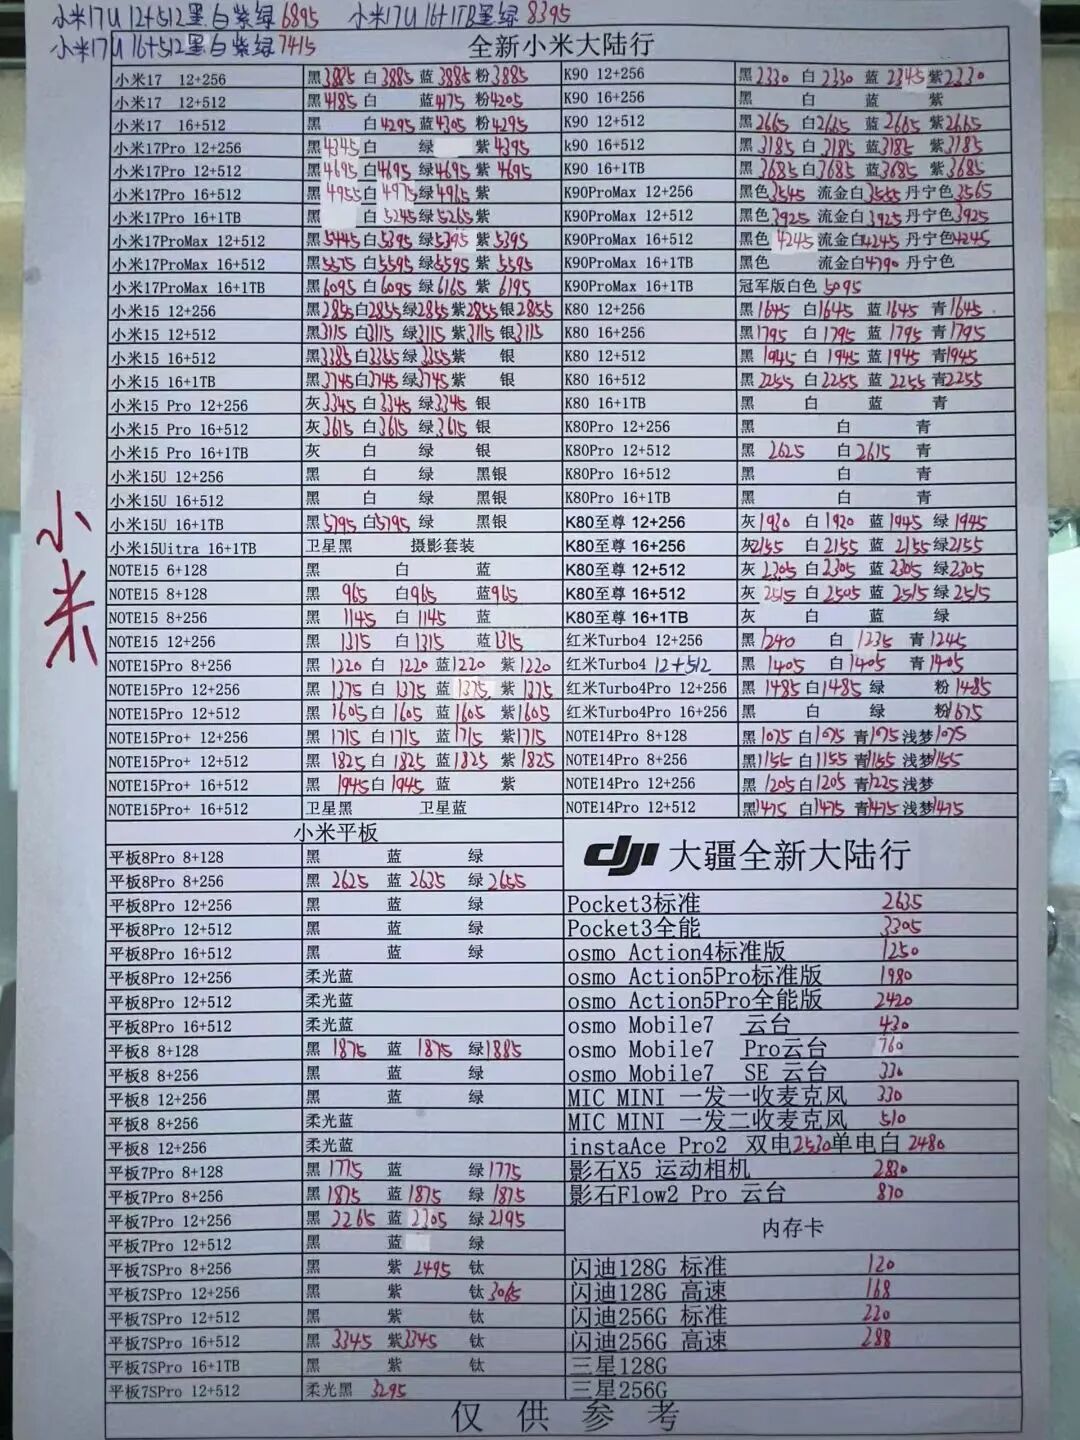 小米17U 12+512黑.白紫绿6895 小米17U 16+1TB黑绿 8395
小米17U 16+512黑白紫绿7415
全新小米大陆行
小米17 12+256 黑3885 白3885 蓝3885 粉3885
小米17 12+512 黑4185 白 蓝4175 粉4205
小米17 16+512 黑 白4295 蓝4305 粉4295
小米17Pro 12+256 黑4345 白 绿 紫4395
小米17Pro 12+512 黑4695 白4695 绿4695 紫4695
小米17Pro 16+512 黑4955 白4975 绿4965 紫
小米17Pro 16+1TB 黑 白5245 绿5265 紫
小米17ProMax 12+512 黑5445 白5395 绿5395 紫5395
小米17ProMax 16+512 黑5575 白5595 绿5595 紫5595
小米17ProMax 16+1TB 黑6095 白6095 绿6165 紫6195
小米15 12+256 黑2855 白2855 绿2855 紫2855 银2855
小米15 12+512 黑3115 白3115 绿3115 紫3115 银3115
小米15 16+512 黑3385 白3355 绿3355 紫 银
小米15 16+1TB 黑3745 白3745 绿3745 紫 银
小米15 Pro 12+256 灰3345 白3345 绿3345 银
小米15 Pro 16+512 灰3615 白3615 绿3615 银
小米15 Pro 16+1TB 灰 白 绿 银
小米15U 12+256 黑 白 绿 黑银
小米15U 16+512 黑 白 绿 黑银
小米15U 16+1TB 黑5795 白5795 绿 黑银
小米15Uitra 16+1TB 卫星黑 摄影套装
NOTE15 6+128 黑 白 蓝
NOTE15 8+128 黑965 白965 蓝965
NOTE15 8+256 黑1145 白1145 蓝
NOTE15 12+256 黑1315 白1315 蓝1315
NOTE15Pro 8+256 黑1220 白1220 蓝1220 紫1220
NOTE15Pro 12+256 黑1375 白1375 蓝1375 紫1375
NOTE15Pro 12+512 黑1605 白1605 蓝1605 紫1605
NOTE15Pro+ 12+256 黑1715 白1715 蓝1715 紫1715
NOTE15Pro+ 12+512 黑1825 白1825 蓝1825 紫1825
NOTE15Pro+ 16+512 黑1945 白1945 蓝 紫
NOTE15Pro+ 16+512 卫星黑 卫星蓝
K90 12+256 黑2330 白2330 蓝2345 紫2330
K90 16+256 黑 白 蓝 紫
K90 12+512 黑2665 白2665 蓝2665 紫2665
k90 16+512 黑3185 白3185 蓝3185 紫3185
K90 16+1TB 黑3685 白3685 蓝3685 紫3685
K90ProMax 12+256 黑色3545 流金白3555 丹宁色3565
K90ProMax 12+512 黑色3925 流金白3925 丹宁色3925
K90ProMax 16+512 黑色4245 流金白4245 丹宁色4245
K90ProMax 16+1TB 黑色 流金白4790 丹宁色
K90ProMax 16+1TB 冠军版白色5095
K80 12+256 黑1645 白1645 蓝1645 青1645
K80 16+256 黑1795 白1795 蓝1795 青1795
K80 12+512 黑1945 白1945 蓝1945 青1945
K80 16+512 黑2255 白2255 蓝2255 青2255
K80 16+1TB 黑 白 蓝 青
K80Pro 12+256 黑 白 青
K80Pro 12+512 黑2625 白2615 青
K80Pro 16+512 黑 白 青
K80Pro 16+1TB 黑 白 青
K80至尊 12+256 灰1920 白1920 蓝1945 绿1945
K80至尊 16+256 灰2155 白2155 蓝2155 绿2155
K80至尊 12+512 灰2305 白2305 蓝2305 绿2305
K80至尊 16+512 灰2515 白2505 蓝2515 绿2515
K80至尊 16+1TB 灰 白 蓝 绿
红米Turbo4 12+256 黑1240 白1235 青1245
红米Turbo4 12+512 黑1405 白1405 青1405
红米Turbo4Pro 12+256 黑1485 白1485 绿 粉1485
红米Turbo4Pro 16+256 黑 白 绿 粉1675
NOTE14Pro 8+128 黑1075 白1075 青1075 浅梦1075
NOTE14Pro 8+256 黑1155 白1155 青1155 浅梦1155
NOTE14Pro 12+256 黑1205 白1205 青1225 浅梦
NOTE14Pro 12+512 黑1475 白1475 青1475 浅梦1475
小米
小米平板
平板8Pro 8+128 黑 蓝 绿
平板8Pro 8+256 黑2625 蓝2635 绿2655
平板8Pro 12+256 黑 蓝 绿
平板8Pro 12+512 黑 蓝 绿
平板8Pro 16+512 黑 蓝 绿
平板8Pro 12+256 柔光蓝
平板8Pro 12+512 柔光蓝
平板8Pro 16+512 柔光蓝
平板8 8+128 黑1875 蓝1875 绿1885
平板8 8+256 黑 蓝 绿
平板8 12+256 黑 蓝 绿
平板8 8+256 柔光蓝
平板8 12+256 柔光蓝
平板7Pro 8+128 黑1775 蓝 绿1775
平板7Pro 8+256 黑1875 蓝1875 绿1875
平板7Pro 12+256 黑2265 蓝2205 绿2195
平板7Pro 12+512 黑 蓝 绿
平板7SPro 8+256 黑 紫2495 钛
平板7SPro 12+256 黑 紫 钛3065
平板7SPro 12+512 黑 紫 钛
平板7SPro 16+512 黑3345 紫3345 钛
平板7SPro 16+1TB 黑 紫 钛
平板7SPro 12+512 柔光黑3295
dji 大疆全新大陆行
Pocket3标准 2635
Pocket3全能 3305
osmo Action4标准版 1250
osmo Action5Pro标准版 1980
osmo Action5Pro全能版 2420
osmo Mobile7 云台 430
osmo Mobile7 Pro云台 760
osmo Mobile7 SE 云台 330
MIC MINI 一发一收麦克风 330
MIC MINI 一发二收麦克风 510
instaAce Pro2 双电2530单电白2480
影石X5 运动相机 2830
影石Flow2 Pro 云台 870
内存卡
闪迪128G 标准 120
闪迪128G 高速 168
闪迪256G 标准 220
闪迪256G 高速 288
三星128G
三星256G
仅供参考